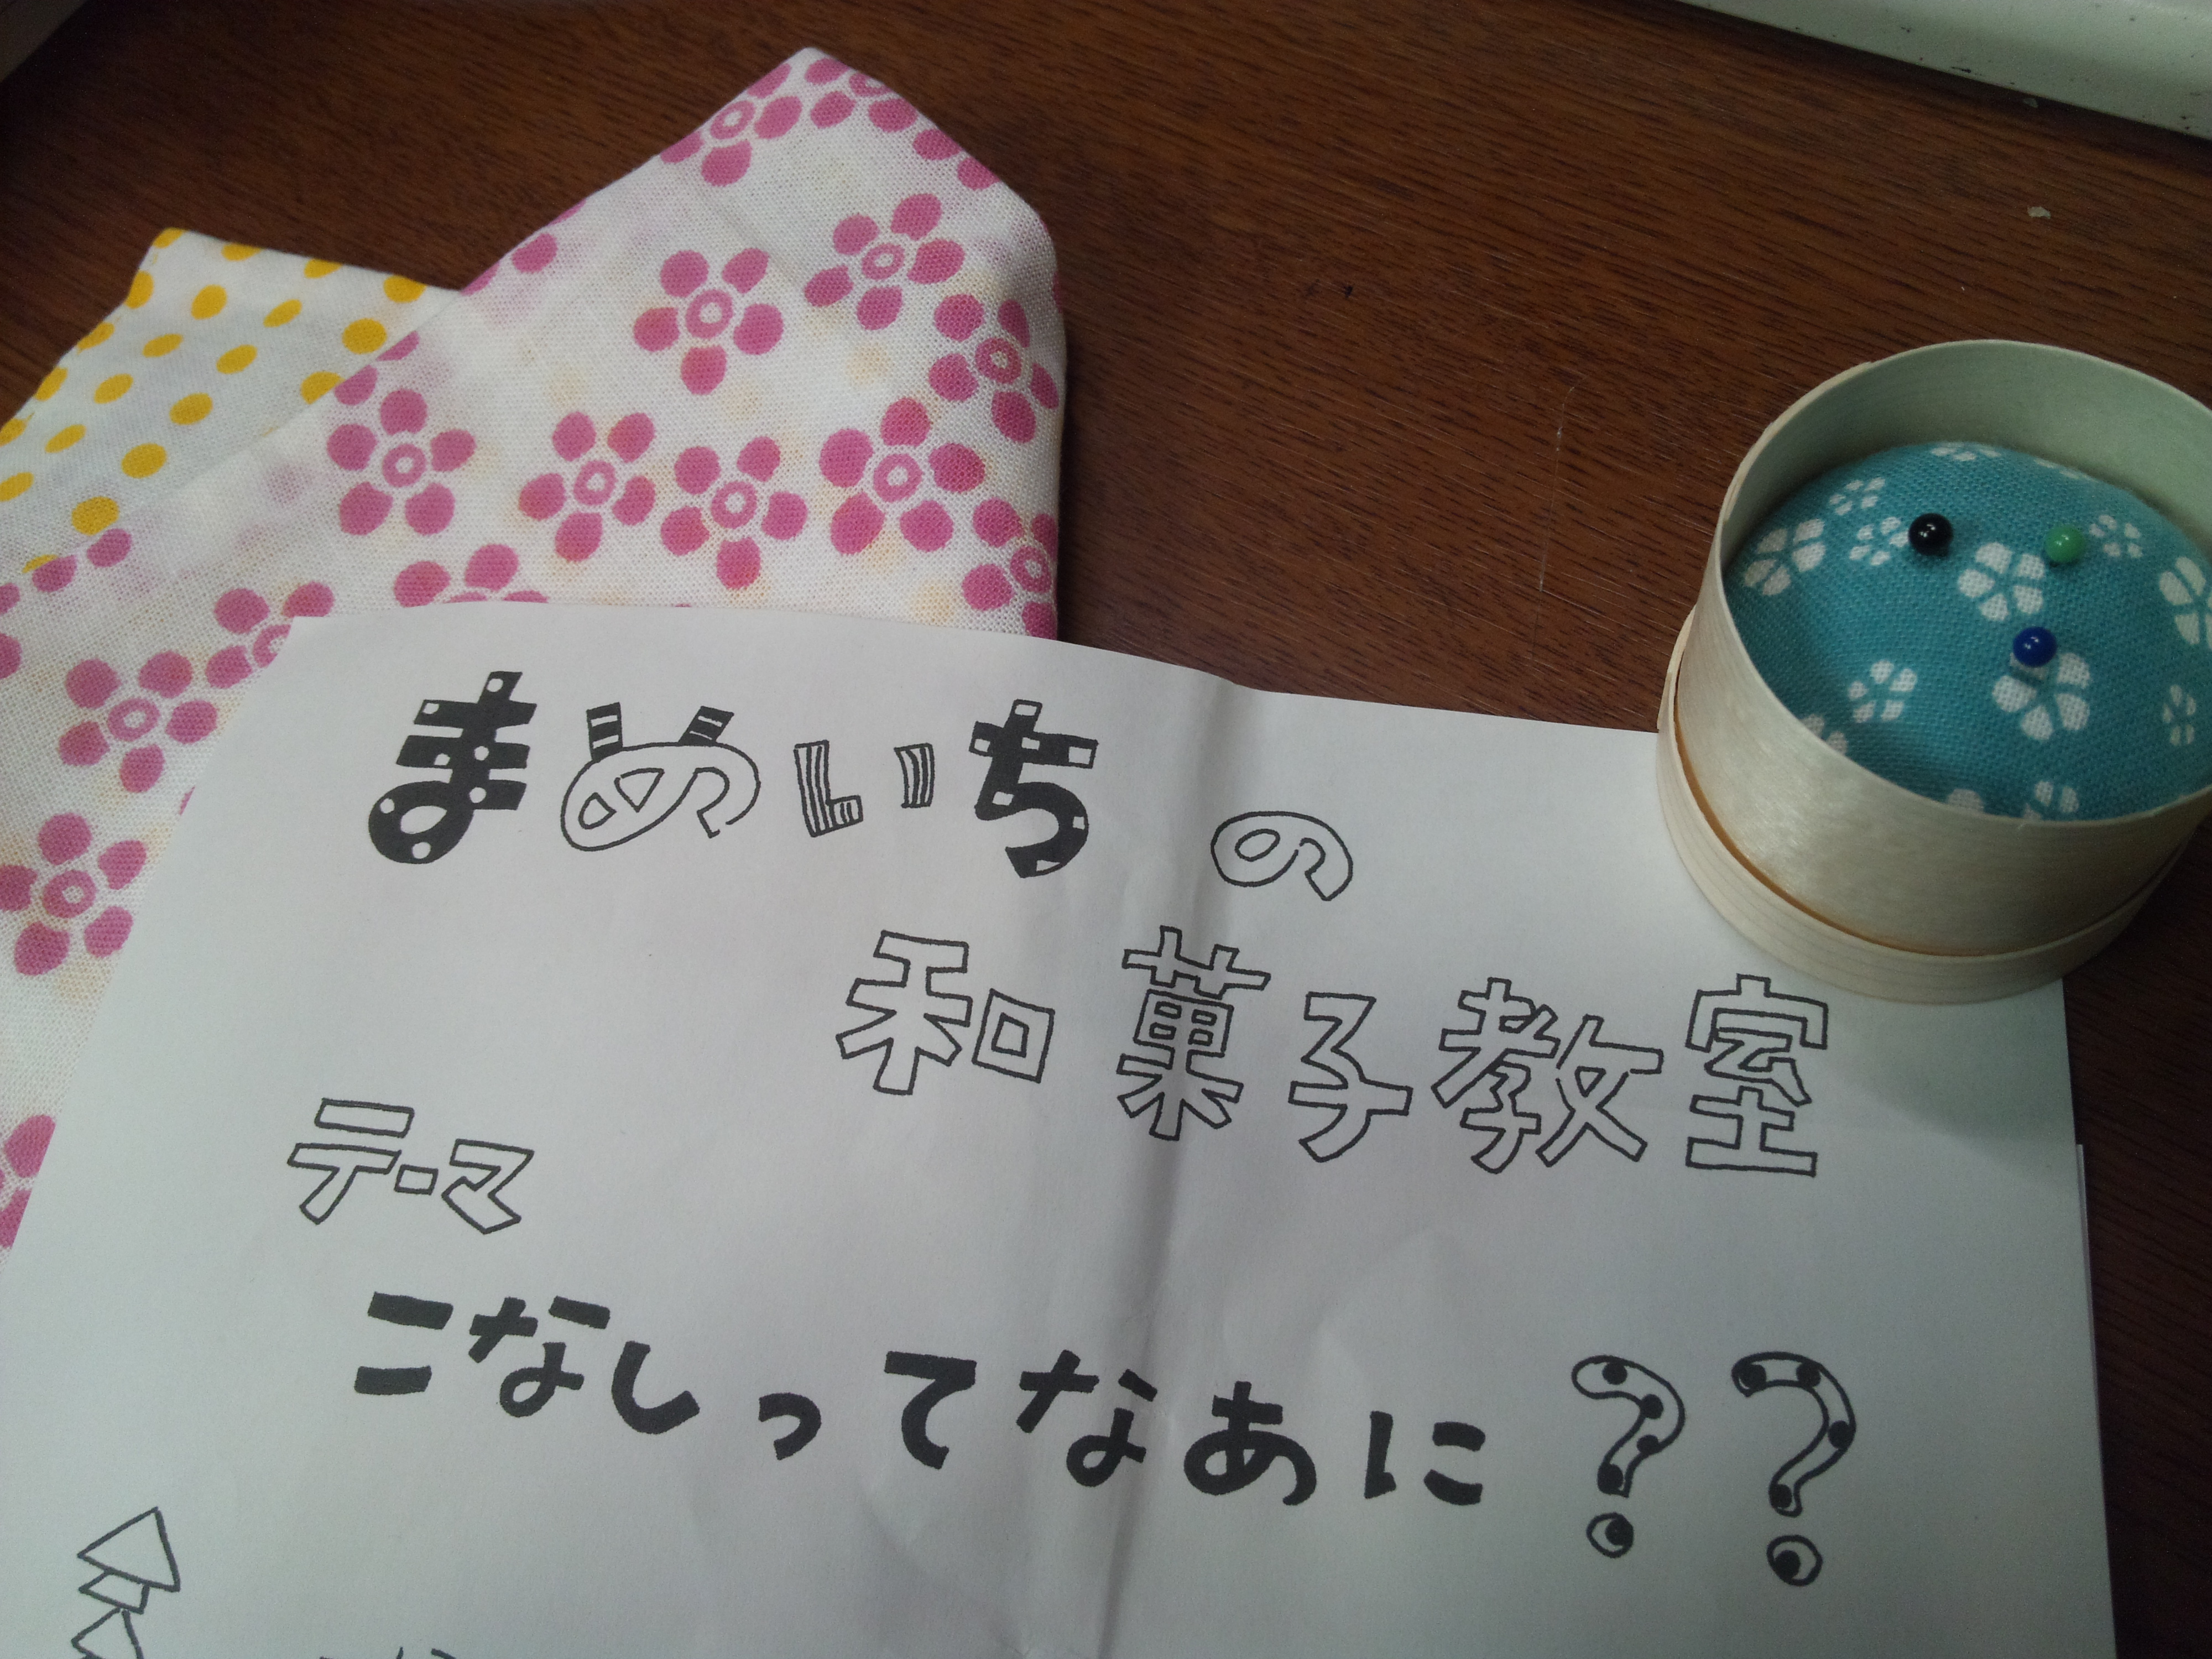 まめいちの
和菓子教室
テーマ
こなしってなあに??